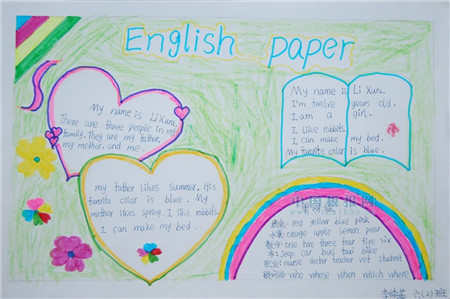 English paper
My name is Li Xun.
There are three people in my
family. They are my father,
my mother, and me.
My name is Li Xun.
I'm twelve years old.
I am a girl.
I like rabbits.
I can make my bed.
My favorite color is blue.
my father likes summer. His
favorite color is blue. My
mother likes spring. I like rabbits.
I can make my bed.
red yellow blue pink
orange apple lemon pear
数字: one two three four five six
car bus taxi bike
nurse doctor teacher vet student
who whose when which where
六(2)班